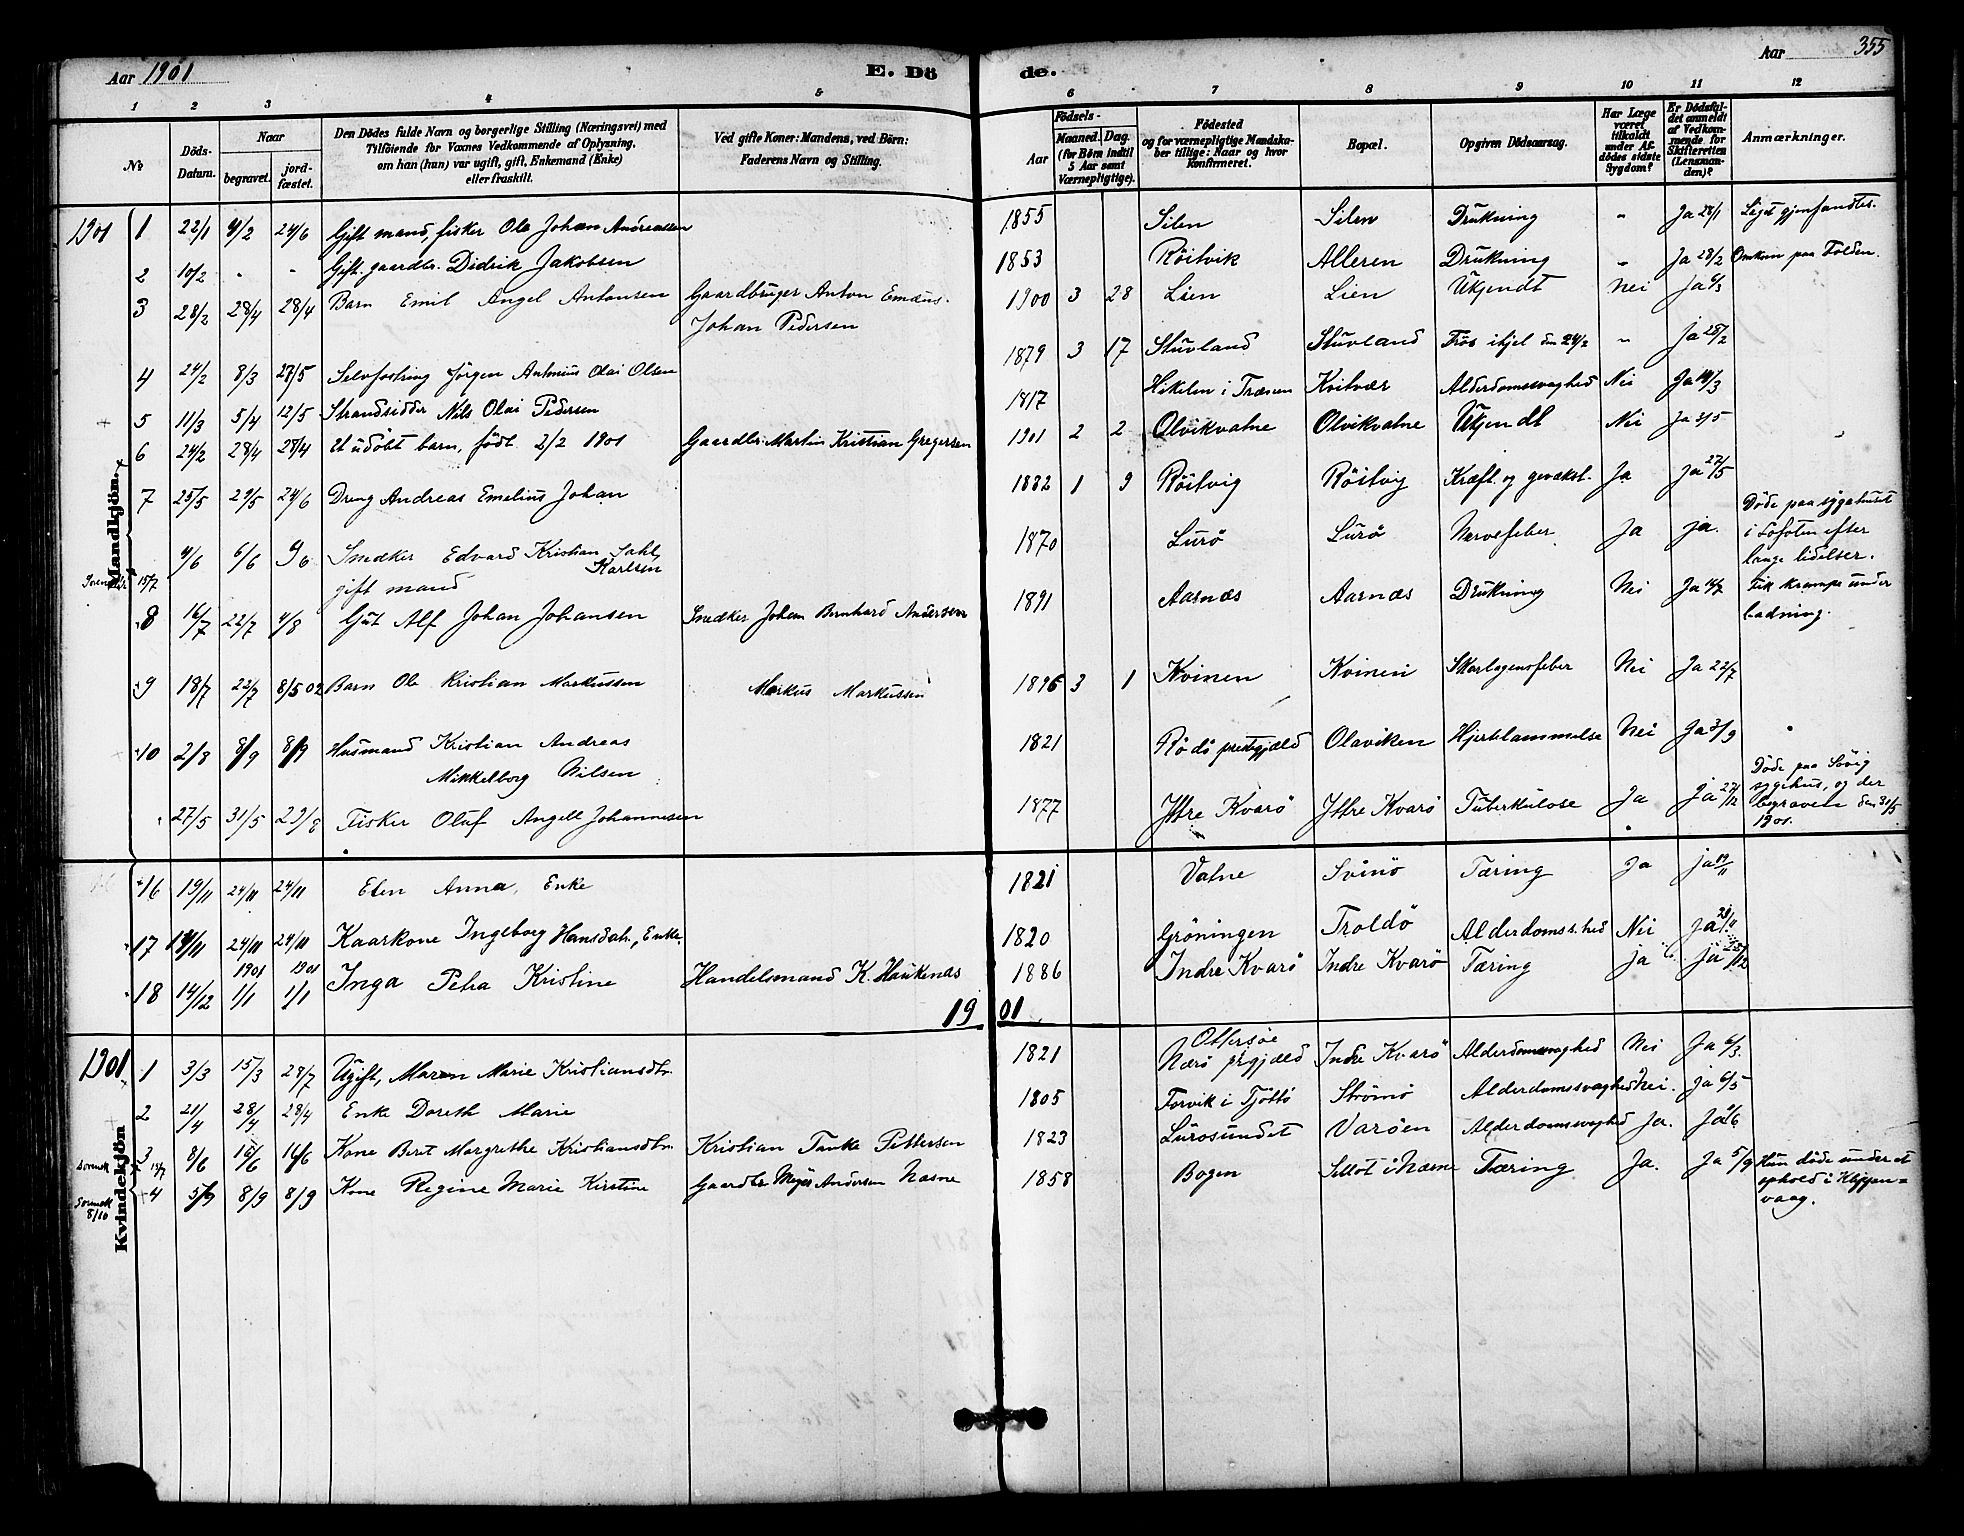 Aar 1901 E. Dö de. Aar 355
1 2 3 4 5 6 7 8 9 10 11 12
No
Döds-Datum.
Naar
begravet.
jord-fæstet.
Den Dödes fulde Navn og borgerlige Stilling (Næringsvei) med
Tilföiende for Voxnes Vedkommende af Oplysning,
om han (hun) var ugift, gift, Enkemand (Enke)
eller fraskilt.
Ved gifte Koner: Mandens, ved Börn:
Faderens Navn og Stilling.
Födsels-
Aar
Maaned. Dag.
(for Börn indtil
5 Aar samt
Værnepligtige).
Födested
og for værnepligtige Mandska-
ber tillige: Naar og hvor
Konfirmeret.
Bopæl.
Opgiven Dödsaarsag.
Har Læge
været
tilkaldt
under Af-
dödes sidste
Sygdom?
Er Dödsfal-
det anmeldt
af Vedkom-
mende for
Skifteretten
(Lensman-
den)?
Anmærkninger.
Mandkjön.
1901 1 22/1 9/2 24/6 Gift mand, fisker Ole Johan Andreassen 1855 Silen Silen Drukning " Ja 28/1 Liget gjenfandtes.
2 10/2 " " Gift. gaardbr. Didrik Jakobsen 1853 Röitvik Alleren Drukning " Ja 28/2 Omkom paa Folden.
3 28/2 28/4 28/4 Barn Emil Angel Antonsen Gaardbruger Anton Emæus. 1900 3 28 Lien Lien Ukjendt Nei Ja 6/3
Johan Pedersen
4 24/2 8/3 27/5 Selvfostring Jörgen Antonius Olai Olsen 1879 3 17 Stuvland Stuvland Frös ihjel den 24/2 " Ja 28/2
5 11/3 5/4 12/5 Strandsidder Nils Olai Pedersen 1817 i Trænen Kvitvær Alderdomssvaghed Nei Ja 14/3
6 24/2 28/4 28/4 Et udöbt barn, født 2/2 1901 Gaardbr. Martin Kristian Gregersen 1901 2 2 Olvikvatne Olvikvatne Ukjendt Nei Ja
7 25/5 29/5 24/6 Dreng Andreas Emelius Johan 1882 1 9 Röitvig Röitvig Kræft. og gevækst. Ja Ja 27/5
4/6 6/6 9/6 Snedker Edvard Kristian Karlsen 1870 Lurö Lurö Nervefeber Ja ja. Döde paa sygehuset
gift mand i Lofoten efter
lange lidelser.
15/7 8 16/7 22/7 4/8 Gut Alf Johan Johansen Snedker Johan Bernhard Andersen 1891 Aarnæs Aarnæs Drukning Nei Ja Fik krampe under
badning.
9 18/7 22/7 8/5 02 Barn Ole Kristian Markussen Markus Markussen 1896 3 1 Kvinen Kvinen Skarlagensfeber Nei Ja 22/7
10 2/8 8/9 8/9 Husmand Kristian Andreas 1821 Rödö prestegjæld Olaviken Hjertelammelse Nei Ja 3/9
Mikkelborg Nilsen
27/5 31/5 29/8 Fisker Oluf Angell Johannesen 1877 Yttre Kvarö Yttre Kvarö Tuberkulose Ja ja 27/12 Döde paa Sövig
sygehus, og der
begraven den 31/5
1901.
16 19/11 24/11 24/11 Elen Anna, Enke 1821 Vatne Svinö Tæring Ja ja 19/11
17 14/11 24/11 24/11 Kaarkone Ingeborg Hansdatr., Enke. 1820 Gröningen Troldö Alderdomss.hed Nei ja
1901 1901
18 14/12 1/1 1/1 Inga Petra Kristine Handelsmand K. Haukenæs 1886 Indre Kvarö Indre Kvarö Tæring ja ja
1901
Kvindekjön
1901 1 3/3 15/3 28/7 Ugift, Maren Marie Kristiansdtr. 1821 Ottersöe Indre Kvarö Alderdomssvaghed Nei Ja 6/3.
Nærö prgjæld
2 21/4 28/4 28/4 Enke Doreth Marie 1805 Forvik i Tjöttö Strömö Alderdomssvaghed Nei. ja 6/5
3 8/6 16/6 16/6 Kone Berit Margrethe Kristiansdtr. Kristian Tanke Pettersen 1823 Lurosundet Varöen Alderdomssvaghed Ja. Ja
4 5/9 8/9 8/9 Kone Regine Marie Kirstine Gaardbr. Meyer Andersen Næsne 1858 Bogen i Næsne Tæring Ja. Ja 5/9 Hun döde under et
ophold i Klippen-
vaag.
8/10